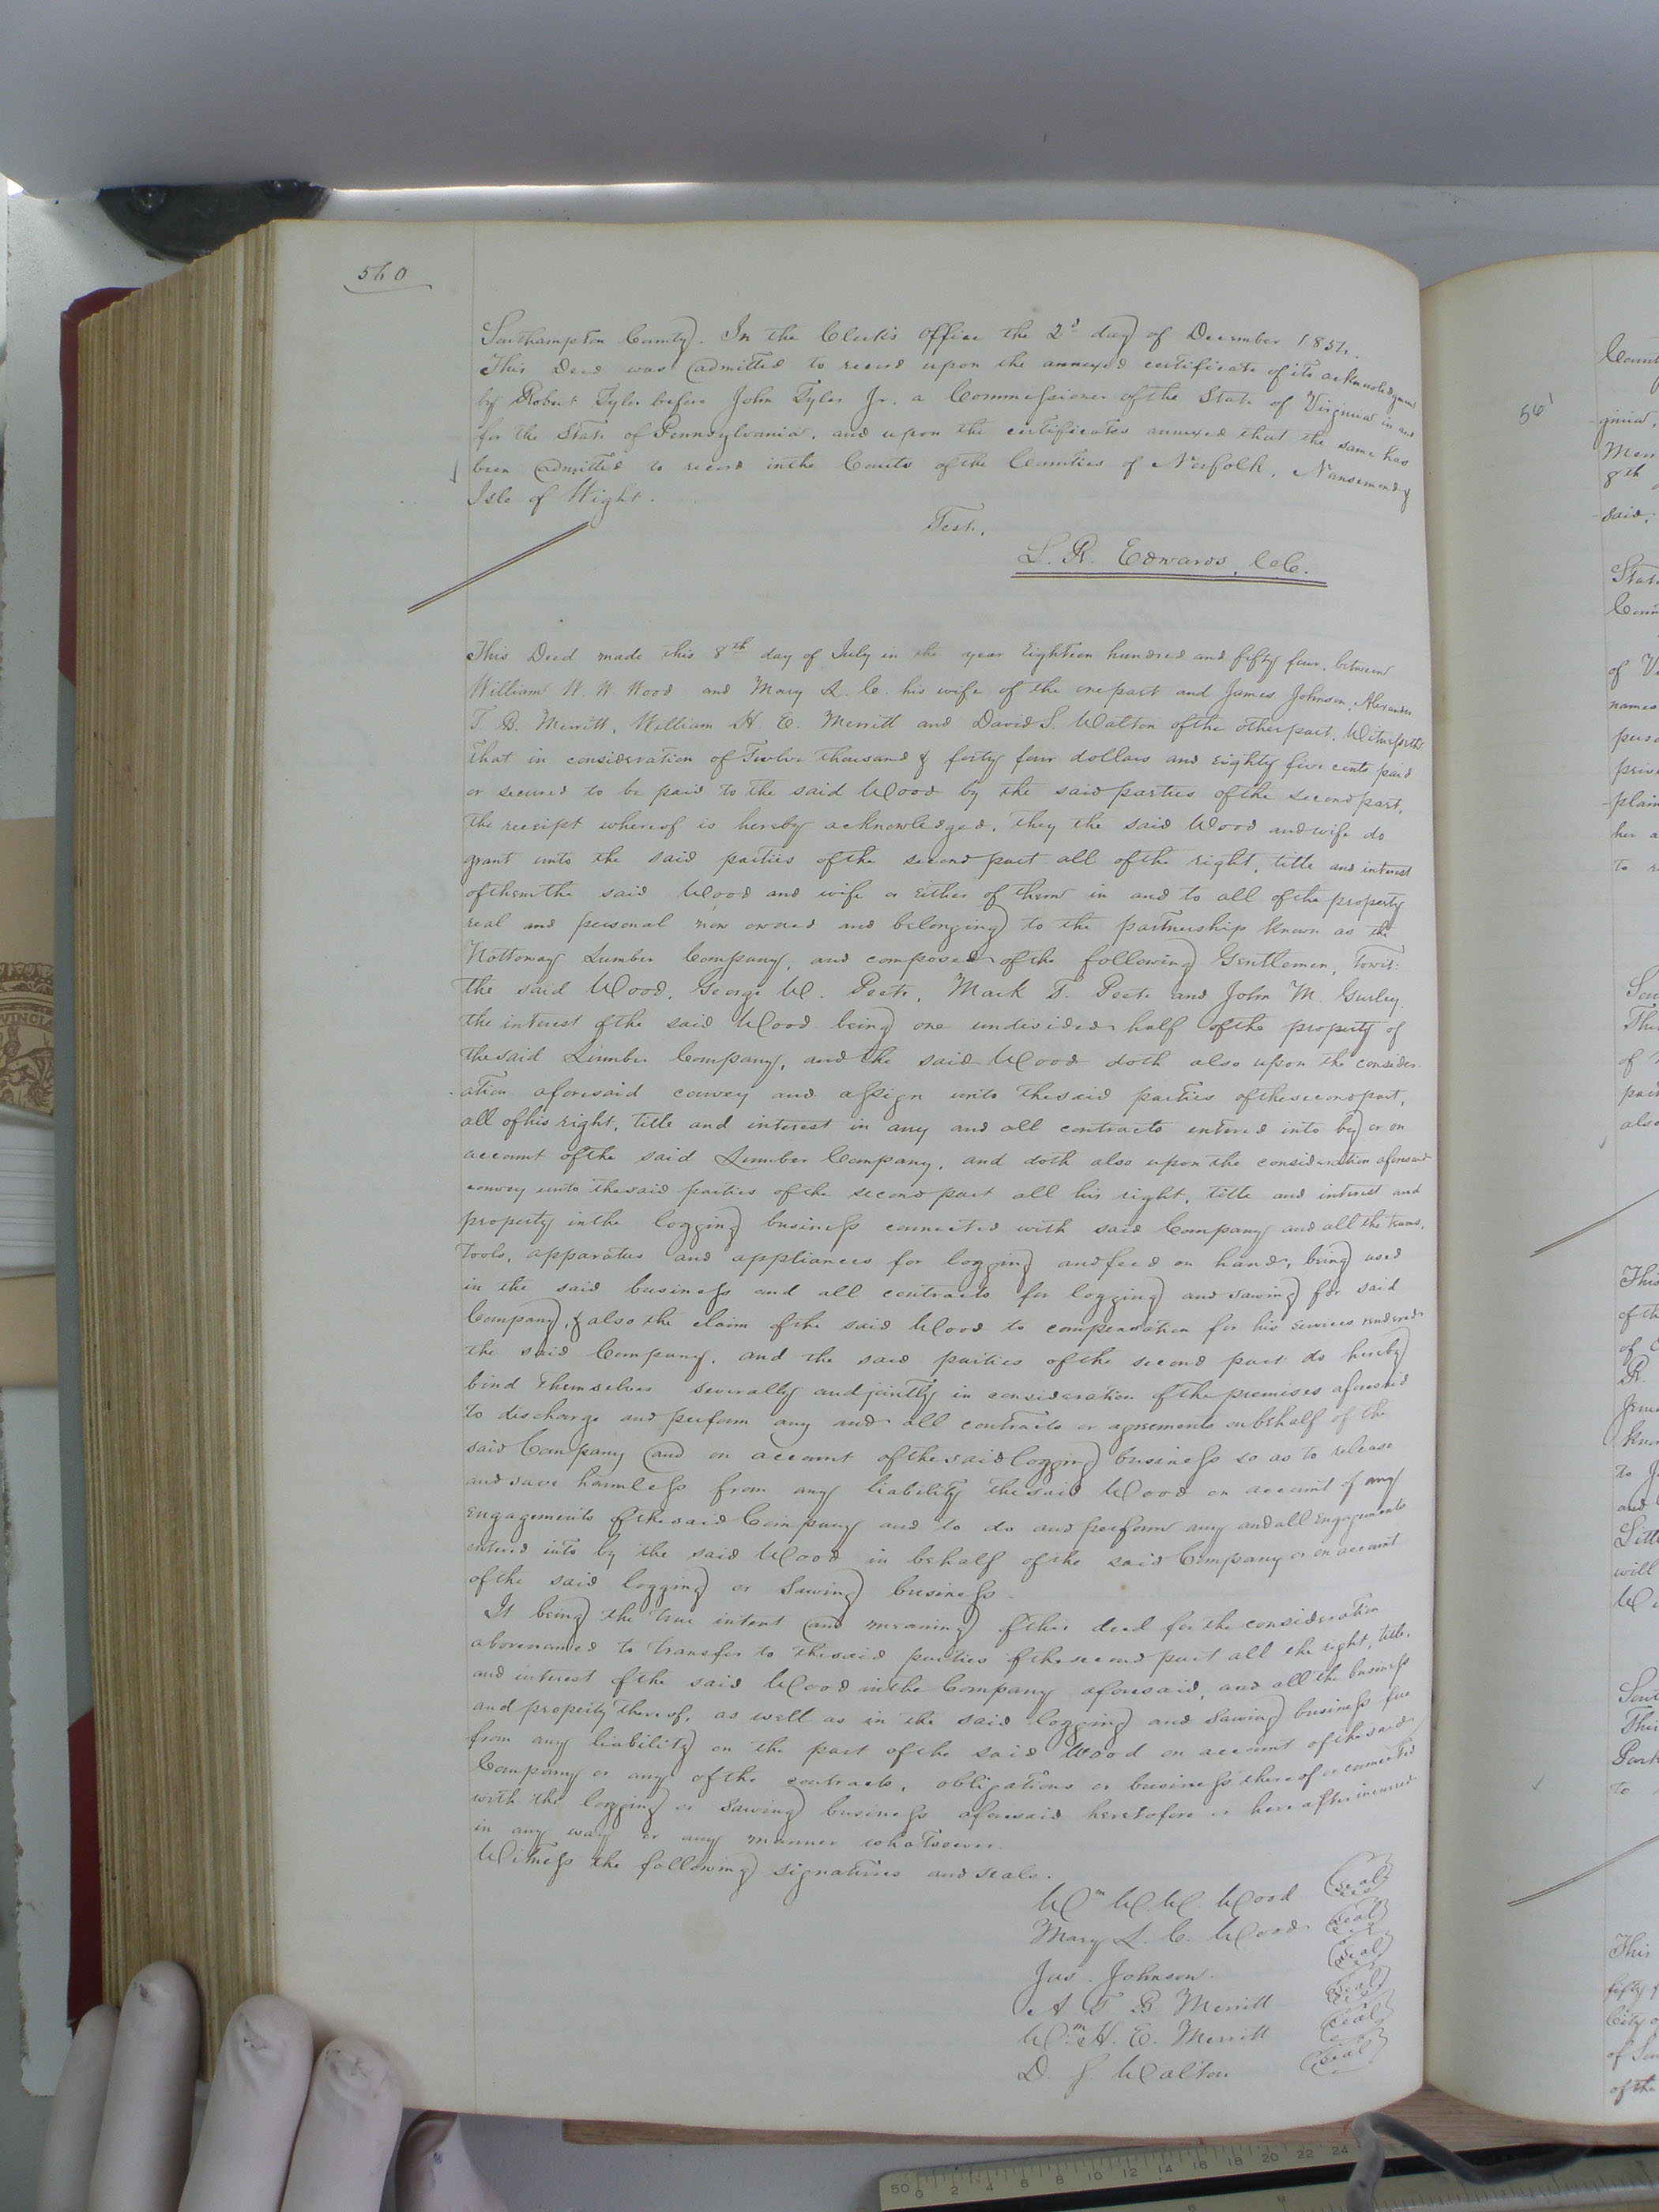 560
Southampton County. In the Clerk's Office the 2d day of December 1854.
This Deed was admitted to record upon the annexed certificate of its acknowledgment
by Robert Tyler before John Tyler Jr. a Commissioner of the State of Virginia in and
for the State of Pennsylvania, and upon the certificates annexed that the same has
been admitted to record in the Courts of the Counties of Norfolk, Nansemond &
Isle of Wight.
Test,
L. R. Edwards, C.C.
This Deed made this 8th day of July in the year Eighteen hundred and fifty four, between
William W. W. Wood and Mary L. C. his wife of the one part and James Johnson, Alexander
T. B. Merritt, William H. E. Merritt and David S. Walton of the other part, Witnesseth:
That in consideration of Twelve thousand & forty four dollars and eighty five cents paid
or secured to be paid to the said Wood by the said parties of the second part,
the receipt whereof is hereby acknowledged, they the said Wood and wife do
grant unto the said parties of the second part all of the right, title and interest
of them the said Wood and wife or either of them in and to all of the property
real and personal now owned and belonging to the partnership known as the
Nottoway Lumber Company, and composed of the following Gentlemen, Towit:
the said Wood, George W. Peete, Mark T. Peete and John M. Gurley
the interest of the said Wood being one undivided half of the property of
the said Lumber Company, and the said Wood doth also upon the consider-
-ation aforesaid convey and assign unto the said parties of the second part,
all of his right, title and interest in any and all contracts entered into by or on
account of the said Lumber Company, and doth also upon the consideration aforesaid
convey unto the said parties of the second part all his right, title and interest and
property in the logging business connected with said Company and all the teams,
Tools, apparatus and appliances for logging and feed on hand, being used
in the said business and all contracts for logging and sawing for said
Company, & also the claim of the said Wood to compensation for his services rendered
the said Company, and the said parties of the second part do hereby
bind themselves severally and jointly in consideration of the premises aforesaid
to discharge and perform any and all contracts or agreements on behalf of the
said Company and on account of the said logging business so as to release
and save harmless from any liability the said Wood on account of any
engagements of the said Company and to do and perform any and all engagements
entered into by the said Wood in behalf of the said Company or on account
of the said logging or Sawing business.
It being the true intent and meaning of this deed for the consideration
abovenamed to transfer to the said parties of the second part all the right, title,
and interest of the said Wood in the Company aforesaid, and all the business
and property thereof, as well as in the said logging and Sawing business free
from any liability on the part of the said Wood on account of the said
Company or any of the contracts, obligations or business thereof or connected
with the logging or Sawing business aforesaid heretofore or hereafter incurred
in any way or any manner whatsoever.
Witness the following signatures and seals.
Wm W. W. Wood (Seal)
Mary L. C. Wood (Seal)
Jas. Johnson. (Seal)
A T B Merritt (Seal)
Wm H. E. Merritt (Seal)
D. S. Walton (Seal)